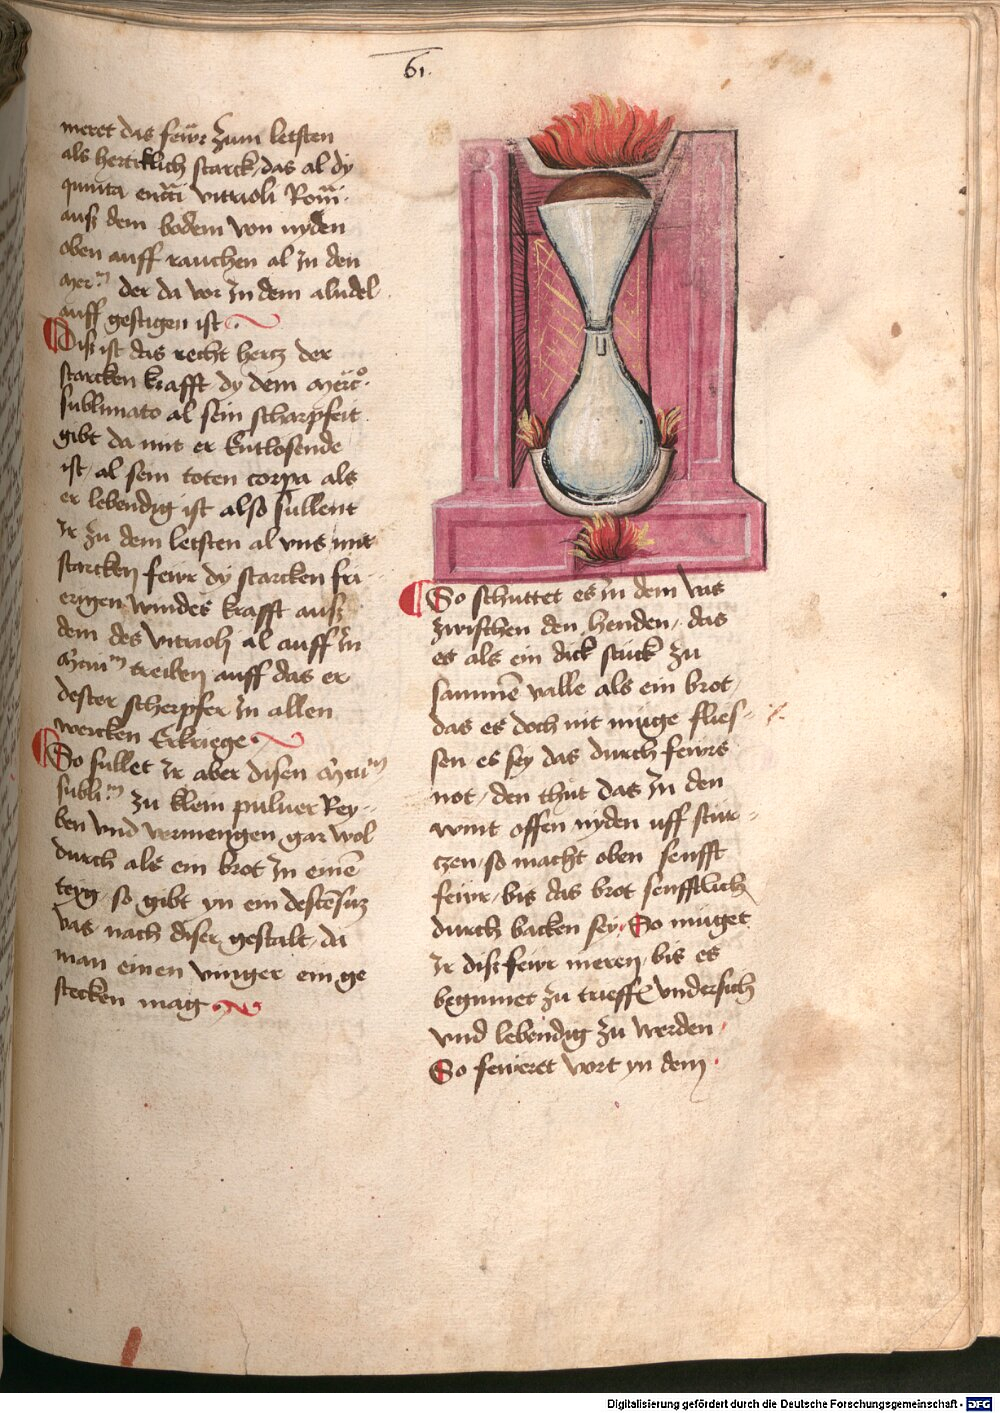 61.
meret das fewr zum letsten
als hertiklich starck, das al dy
quinta vitrioli Rom̄.
auß dem bodem von nyden
oben auff rauchen al in den
mer͞m der da vor in dem aludel
auff gestigen ist
Diß ist das recht hertz der
starcken krafft dy dem merco.
sublimato al sein scharpfeit
gibt da mit er Entlosende
ist, al sein toten corpa als
er lebendig ist also sullent
Ir zu dem letsten al uns mit
starcken fewr dy starcken fu
erigen windes krafft auß
dem des vitrioli al auff in
treiben auff das er
dester scherpfer in allen
wercken Erkriege
So sullet Ir aber disen
subli͞m zu klein puluer Rey-
ben vnd vermengen gar wol
durch als ein brot in eine͞
teyg, so gibt yn ein
vas nach diser gestalt, da
man einen vinger ein ge
stecken mag
So schuttet es in dem vas
zwischen den henden, das
es als ein dick stuck zu
samme͞ valle als ein brot,
das es doch nit muge flies-
sen es sey das durch fewrs
not, den thut das in den
wint offen nyden uff stur-
czen, so macht oben senfft
fewr, bis das brot senfftlich
durch backen sey, So muget
Ir dis fewr meren, bis es
beginnet zu trieff͞e vndersich
vnd lebendig zu werden
So feweret vort yn dem
Digitalisierung gefördert durch die Deutsche Forschungsgemeinschaft - DFG